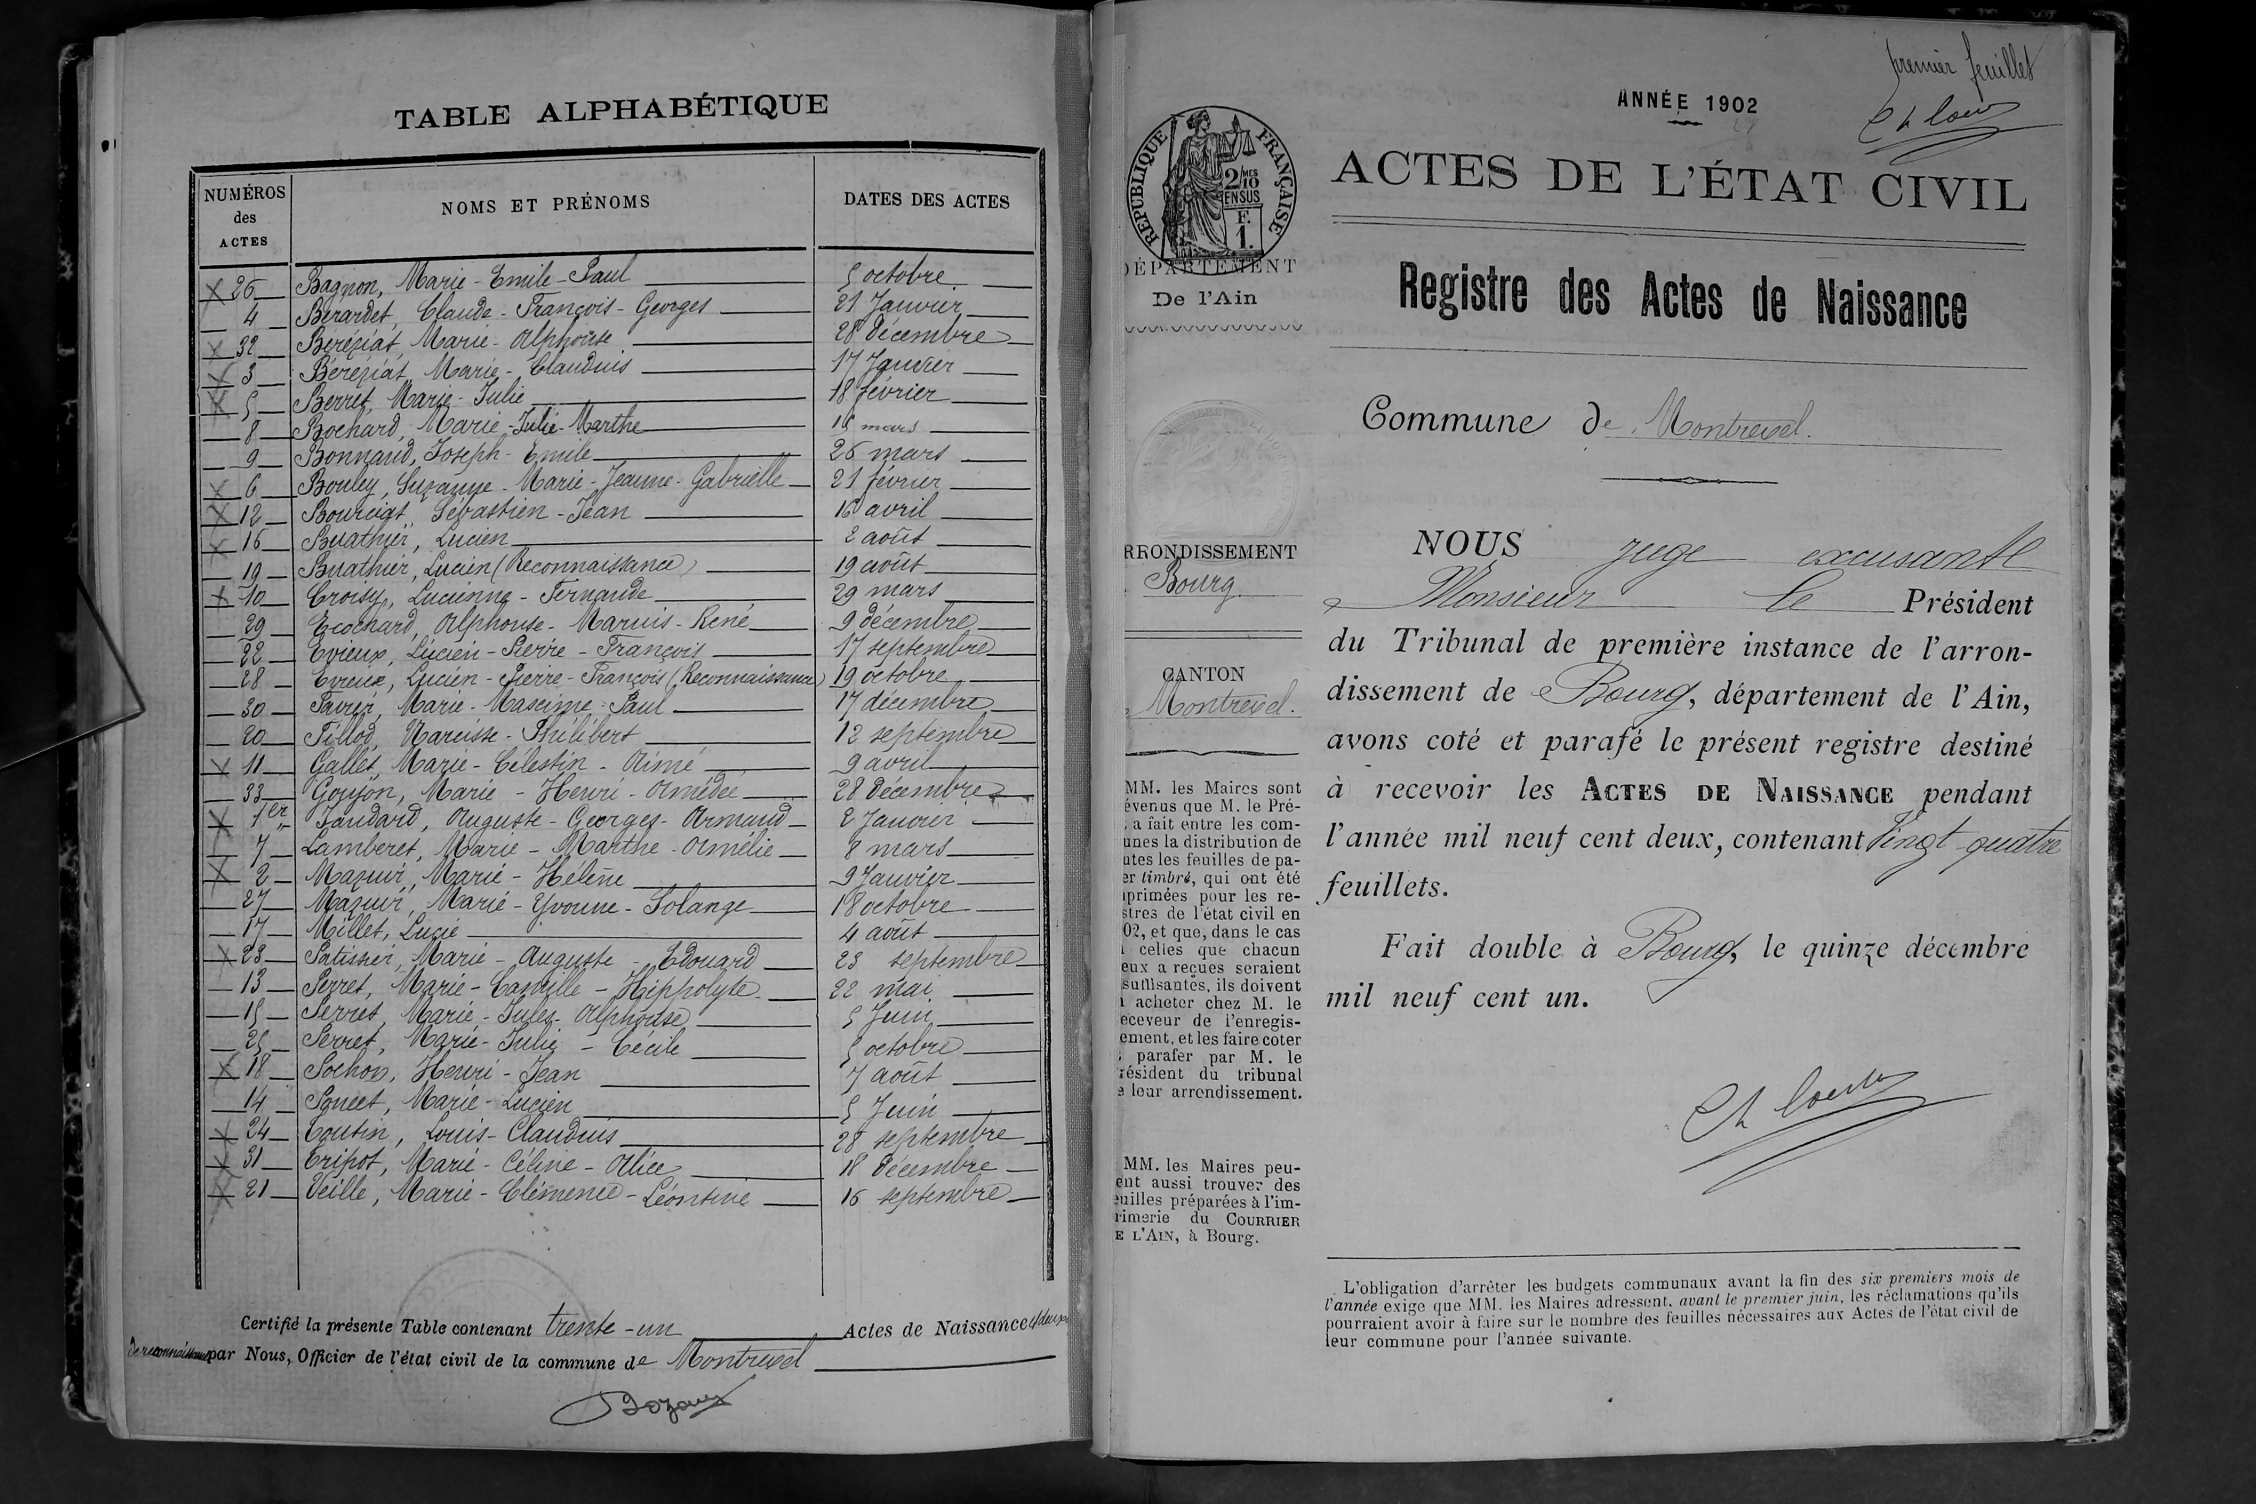 TABLE ALPHABÉTIQUE
NUMÉROS des ACTES NOMS ET PRÉNOMS DATES DES ACTES
26 Bagnon, Marie-Emile-Paul 5 octobre
4 Bérardet, Claude-François-Georges 21 Janvier
32 Béréziat, Marie-Alphonse 28 décembre
3 Béréziat, Marie-Claudius 17 Janvier
5 Berret, Marie-Julie 18 février
8 Bochard, Marie-Julie-Marthe 16 mars
9 Bonnand, Joseph-Emile 26 mars
6 Bouley, Suzanne-Marie-Jeanne-Gabrielle 21 février
12 Bourcigt, Sébastien-Jean 16 avril
16 Buathier, Lucien 2 août
19 Buathier, Lucien (Reconnaissance) 19 août
10 Croisy, Lucienne-Fernande 29 mars
29 Ecochard, Alphonse-Marius-René 9 décembre
22 Evieux, Lucien-Pierre-François 17 septembre
28 Evieux, Lucien-Pierre-François (Reconnaissance) 19 octobre
30 Favier, Marie-Maxime-Paul 17 décembre
20 Fillod, Narcisse-Philibert 12 septembre
11 Gallet, Marie-Célestin-Aimé 9 avril
33 Goyon, Marie-Henri-Amédée 28 décembre
1er Jandard, Auguste-Georges-Armand 2 Janvier
7 Lamberet, Marie-Marthe-Amélie 8 mars
2 Mazuir, Marie-Hélène 9 Janvier
27 Mazuir, Marie-Yvonne-Solange 18 octobre
17 Millet, Lucie 4 août
23 Patissier, Marie-Auguste-Edouard 23 septembre
13 Perret, Marie-Camille-Hippolyte 22 mai
15 Perret, Marie-Jules-Alphonse 5 Juin
25 Perret, Marie-Julie-Cécile 5 octobre
18 Pochon, Henri-Jean 7 août
14 Poncet, Marie-Lucien 5 Juin
24 Coutin, Louis-Claudius 28 septembre
31 Tripot, Marie-Céline-Alice 18 décembre
21 Veille, Marie-Clémence-Léontine 16 septembre
Certifié la présente Table contenant trente-un Actes de Naissance et deux
de reconnaissance par Nous, Officier de l'état civil de la commune de Montrevel
premier feuillet
ANNÉE 1902
RÉPUBLIQUE FRANÇAISE
2/10 MES
EN SUS
F.
1.
DÉPARTEMENT
De l'Ain
ACTES DE L'ÉTAT CIVIL
Registre des Actes de Naissance
Commune de Montrevel.
RRONDISSEMENT
Bourg
CANTON
Montrevel.
MM. les Maires sont
évenus que M. le Pré-
a fait entre les com-
unes la distribution de
utes les feuilles de pa-
er timbré, qui ont été
primées pour les re-
stres de l'état civil en
02, et que, dans le cas
celles que chacun
eux a reçues seraient
suffisantes, ils doivent
acheter chez M. le
eceveur de l'enregis-
ement, et les faire coter
parafer par M. le
résident du tribunal
e leur arrondissement.
MM. les Maires peu-
ent aussi trouver des
euilles préparées à l'im-
rimerie du COURRIER
E L'AIN, à Bourg.
NOUS juge excusant
Monsieur le Président
du Tribunal de première instance de l'arron-
dissement de Bourg, département de l'Ain,
avons coté et parafé le présent registre destiné
à recevoir les ACTES DE NAISSANCE pendant
l'année mil neuf cent deux, contenant Vingt-quatre
feuillets.
Fait double à Bourg, le quinze décembre
mil neuf cent un.
L'obligation d'arrêter les budgets communaux avant la fin des six premiers mois de
l'année exige que MM. les Maires adressent, avant le premier juin, les réclamations qu'ils
pourraient avoir à faire sur le nombre des feuilles nécessaires aux Actes de l'état civil de
leur commune pour l'année suivante.